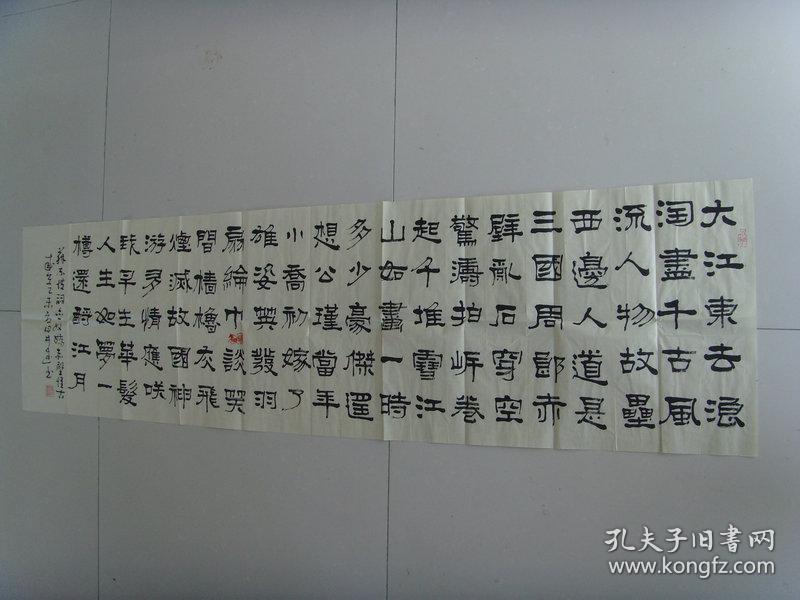 大江東去浪
淘盡千古風
流人物故壘
西邊人道是
三國周郎赤
壁亂石穿空
驚濤拍岸卷
起千堆雪江
山如畫一時
多少豪傑遥
想公瑾當年
小喬初嫁了
雄姿英發羽
扇綸巾談笑
間檣櫓灰飛
煙滅故國神
游多情應咲
我早生華髮
人生如夢一
樽還酹江月
蘇東坡詞念奴嬌赤壁懷古
孔夫子旧书网
www.kongfz.com